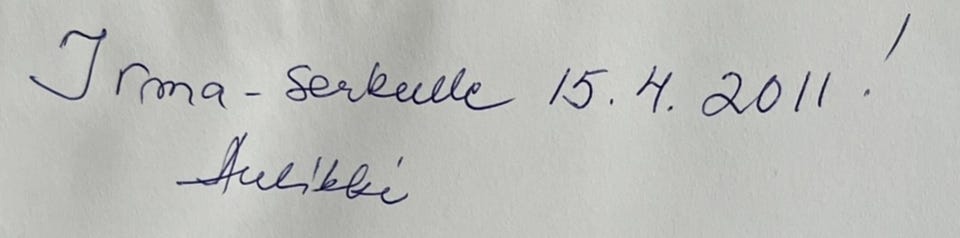 Irma-serkulle 15.4.2011!
Aulikki